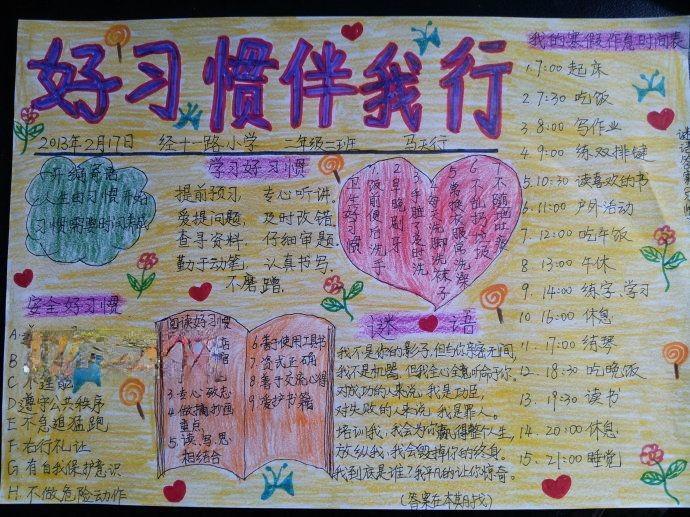 好习惯伴我行
2013年2月17日 经十一路小学 二年级二班 马天行
学习好习惯
提前预习，专心听讲。
爱提问题，及时改错。
查寻资料，仔细审题。
勤于动笔，认真书写。
不磨蹭。
卫生好习惯
1.不随地吐痰
6.不乱扔垃圾
5.勤换衣服常洗澡
4.每天洗脚洗袜子
3.手脏了及时洗
2.早晚刷牙
1.饭前便后洗手
安全好习惯
A.
B.
D.遵守公共秩序
E.不急追猛跑
F.右行礼让
G.有自我保护意识
H.不做危险动作
阅读好习惯
3.专心致志
4.做摘抄画
重点
5.读、写、思
相结合
6.善于使用工具书
7.姿式正确
8.善于交流心得
9.爱护书籍
谜语
我不是你的影子，但与你亲密无间，
我不是机器，但我全心全意听命于你。
对成功的人来说，我是功臣，
对失败的人来说，我是罪人。
培训我，我会为你赢得整个人生，
放纵我，我会毁掉你的终身。
我到底是谁？我平凡的让你惊奇。
(答案在本期找)
我的寒假作息时间表
1.7:00 起床
2.7:30 吃饭
3.8:00 写作业
4.9:00 练双排键
5.10:30 读喜欢的书
6.11:00 户外活动
7.12:00 吃午饭
8.13:00 午休
9.14:00 练字、学习
10.16:00 休息
11.17:00 练琴
12.18:30 吃晚饭
13.19:30 读书
14.20:00 休息
15.21:00 睡觉